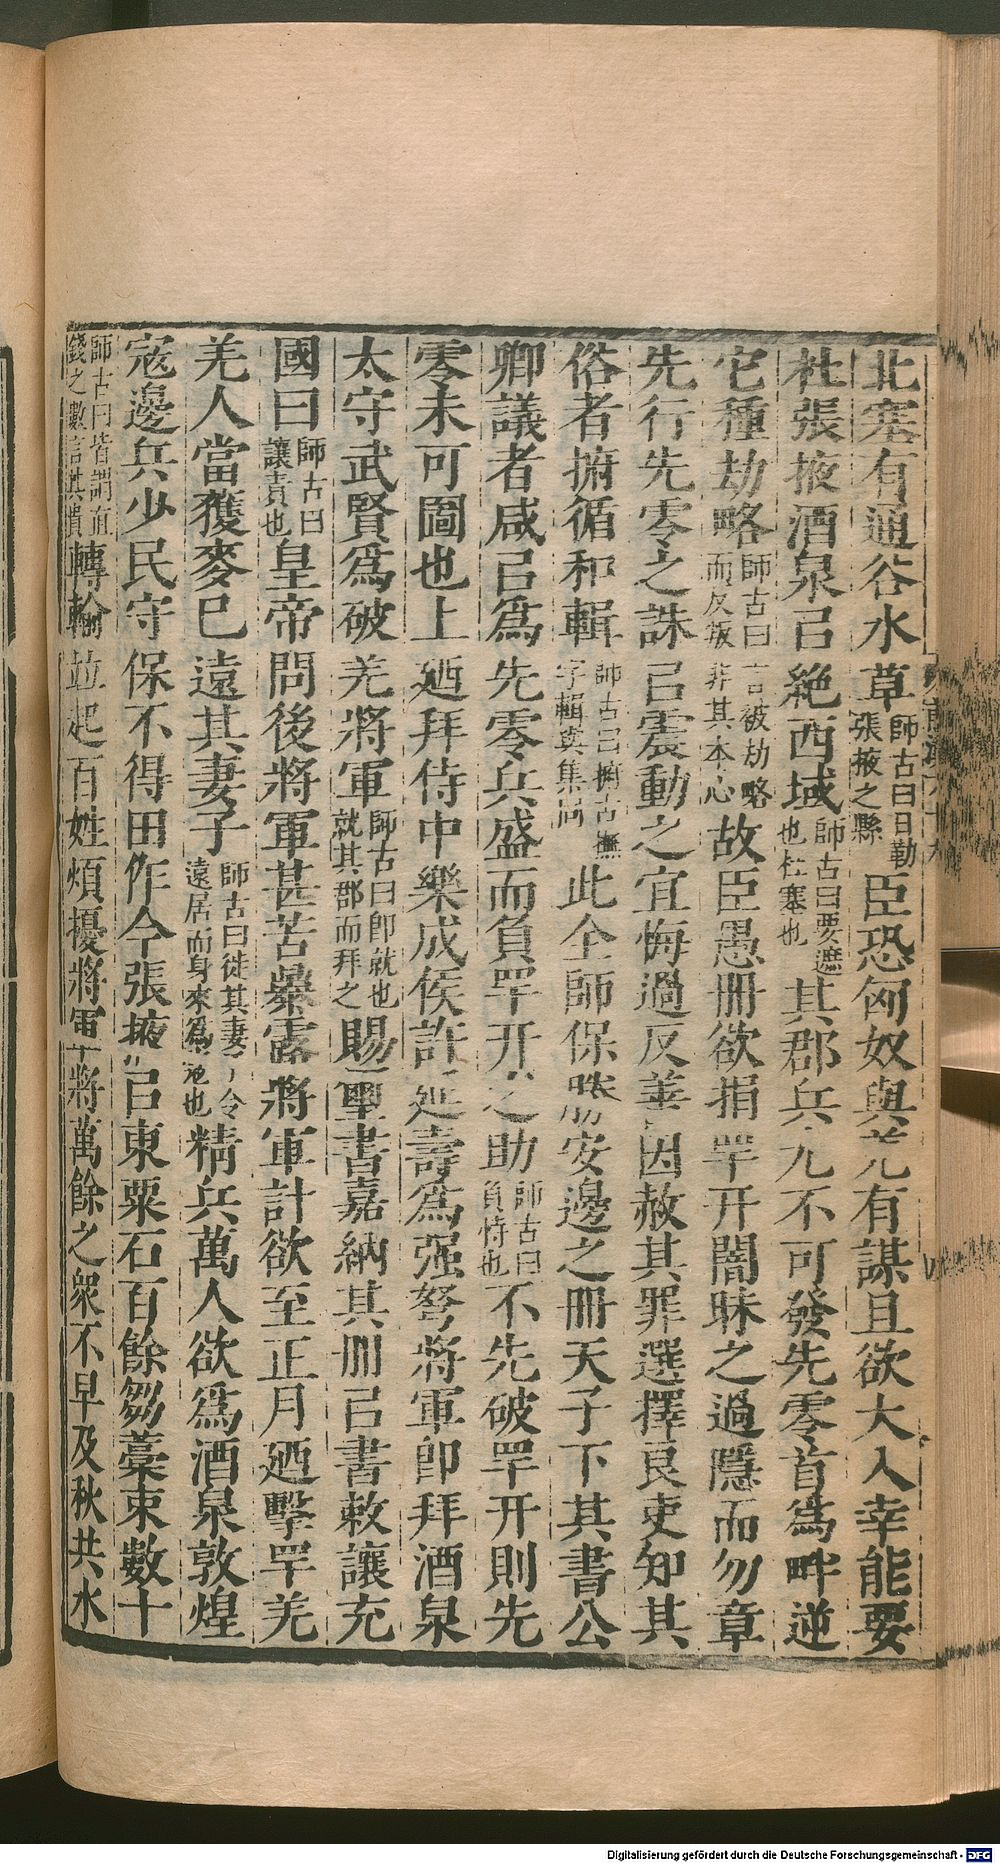 北塞有通谷水草師古曰日勒張掖之縣臣恐匈奴與羌有謀且欲大入幸能要
杜張掖酒泉㠯絶西域師古曰要遮也杜塞也其郡兵尢不可發先零首爲畔逆
它種劫略師古曰言被劫略而反叛非其本心故臣愚冊欲捐䍐幵闇昧之過隱而勿章
先行先零之誅㠯震動之宜悔過反善因赦其罪選擇良吏知其
俗者拊循和輯師古曰拊古撫字輯與集同此全師保勝安邊之冊天子下其書公
卿議者咸㠯爲先零兵盛而負䍐幵之助師古曰負恃也不先破䍐幵則先
零未可圖也上廼拜侍中樂成侯許延壽爲强弩將軍卽拜酒泉
太守武賢爲破羌將軍師古曰卽就也就其郡而拜之賜璽書嘉納其冊㠯書敕讓充
國曰師古曰讓責也皇帝問後將軍甚苦暴露將軍計欲至正月廼擊䍐羌
羌人當獲麥已遠其妻子師古曰徙其妻子令遠居而身來爲寇也精兵萬人欲爲酒泉敦煌
寇邊兵少民守保不得田作今張掖㠯東粟石百餘芻藁束數十
師古曰皆謂直錢之數言其貴轉輸並起百姓煩擾將軍將萬餘之衆不早及秋共水
Digitalisierung gefördert durch die Deutsche Forschungsgemeinschaft - DFG